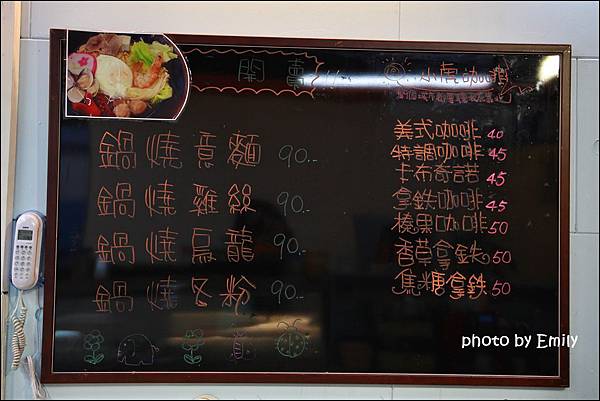 開賣
小虎咖啡
鍋燒意麵 90.-
鍋燒雞絲 90.-
鍋燒烏龍 90.-
鍋燒冬粉 90.-
美式咖啡 40
特調咖啡 45
卡布奇諾 45
拿鐵咖啡 45
榛果咖啡 50
香草拿鐵 50
焦糖拿鐵 50
photo by Emily